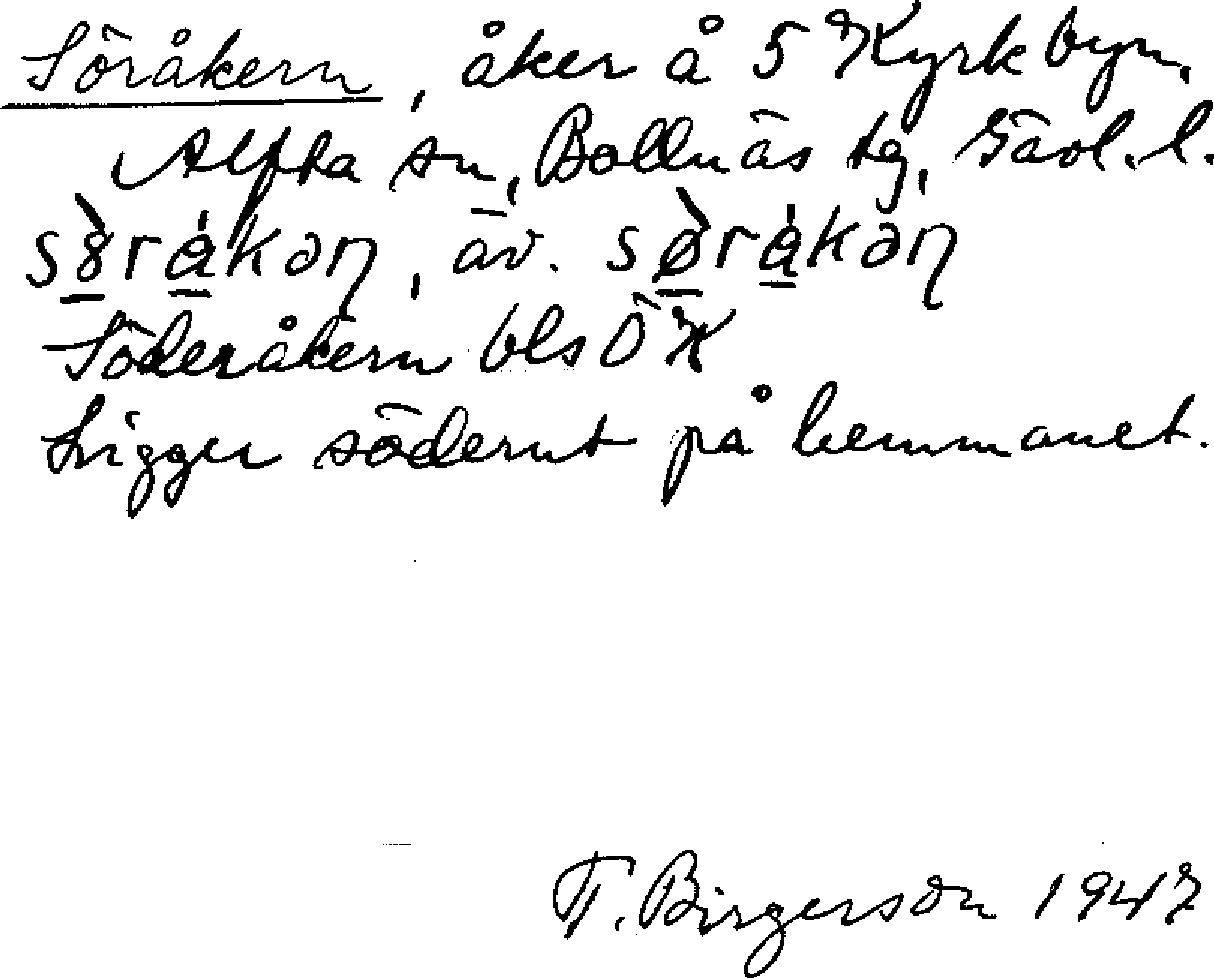 Söråkern, åker å 5 Kyrkbyn,
Alfta sn, Bollnäs tg, Gävl. l.
äv.
Söderåkern bls ÖK
Ligger söderut på hemmanet.
T. Birgerson 1947